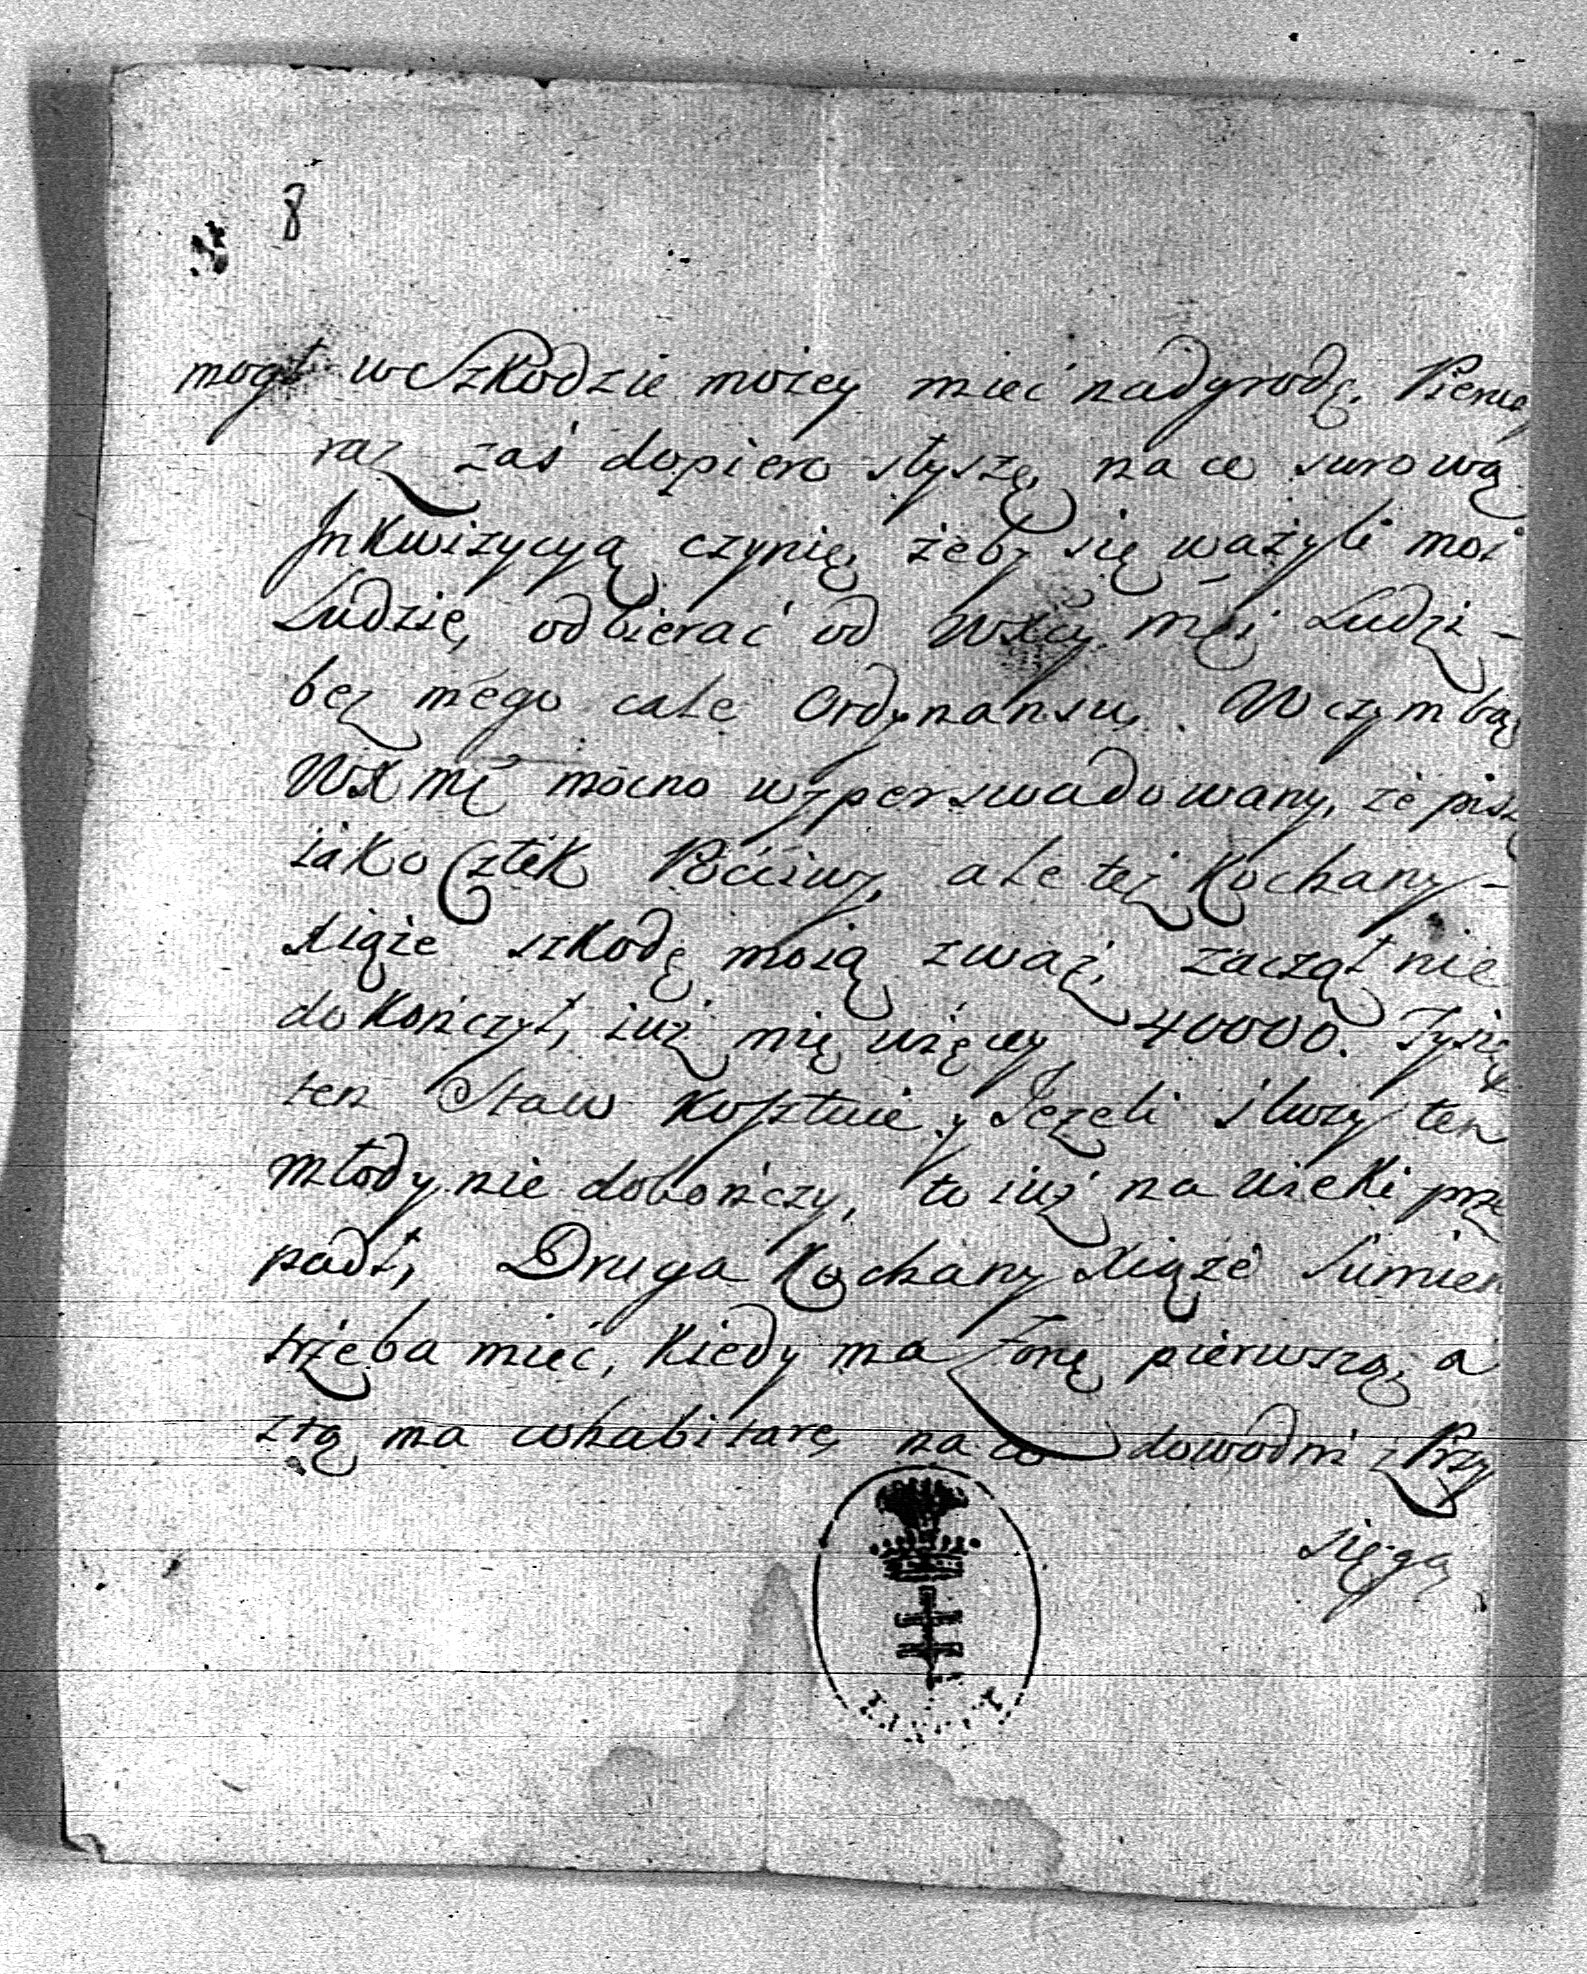 8
mogł w Szkodzie mozey mieć nadgrodę. Pienię
raz zaś dopiero słyszę, na co surową
Jnkwizycyą czynię, żeby się ważyli moi
Ludzie, odbierać od WXcy Mci Ludzi -
bez mego cale Ordynansu. W czym bąć
WX Mć mocno wyperswadowany, że piszę
iako Człek Poćciwy, ale też Kochany -
Xiąże szkodę moią zważ, zaczął nie
dokończył, iuż mię więcey 40000. Tysię
ten Staw Kosztuie, y Jeżeli służy ten
młody nie dokończy, to iuż na wieki prze
padł, Druga Kochany Xiąże Sumien
trżeba mieć, kiedy ma Żonę pierwszą, a
z tą ma cohabitare, na co dowodni z Przy
sięgą